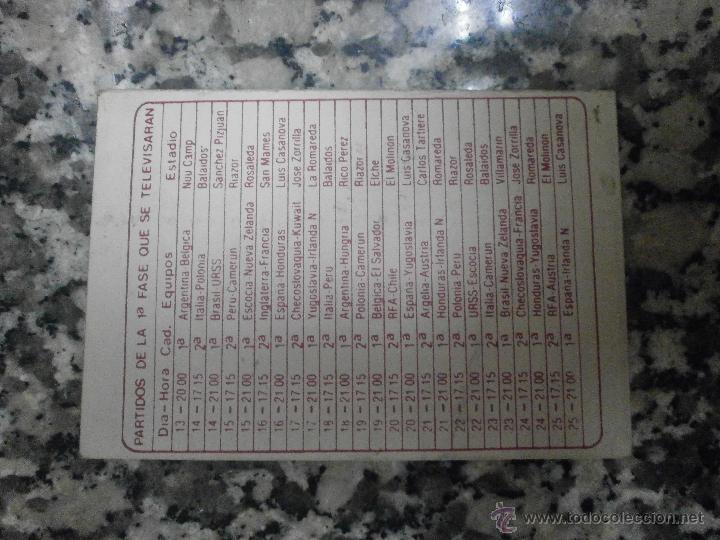 PARTIDOS DE LA 1ª FASE QUE SE TELEVISARAN
Dia-Hora Cad. Equipos Estadio
13 - 20 00 1ª Argentina-Belgica Nou Camp
14 - 17 15 2ª Italia-Polonia Balaidos
14 - 21 00 1ª Brasil URSS Sanchez Pizjuan
15 - 17 15 2ª Peru-Camerun Riazor
15 - 21 00 1ª Escocia Nueva Zelanda Rosaleda
16 - 17 15 2ª Inglaterra-Francia San Mames
16 - 21 00 1ª España-Honduras Luis Casanova
17 - 17 15 2ª Checoslovaquia-Kuwait Jose Zorrilla
17 - 21 00 1ª Yugoslavia-Irlanda N La Romareda
18 - 17 15 2ª Italia-Peru Balaidos
18 - 21 00 1ª Argentina-Hungria Rico Perez
19 - 17 15 2ª Polonia-Camerun Riazor
19 - 21 00 1ª Belgica-El Salvador Elche
20 - 17 15 2ª RFA-Chile El Molinon
20 - 21 00 1ª España-Yugoslavia Luis Casanova
21 - 17 15 2ª Argelia-Austria Carlos Tartiere
21 - 21 00 1ª Honduras-Irlanda N Romareda
22 - 17 15 2ª Polonia Peru Riazor
22 - 21 00 1ª URSS Escocia Rosaleda
23 - 17 15 2ª Italia-Camerun Balaidos
23 - 21 00 1ª Brasil-Nueva Zelanda Villamarin
24 - 17 15 2ª Checoslovaquia-Francia Jose Zorrilla
24 - 21 00 1ª Honduras-Yugoslavia Romareda
25 - 17 15 2ª RFA-Austria El Molinon
25 - 21 00 1ª España-Irlanda N Luis Casanova
www.todocoleccion.net